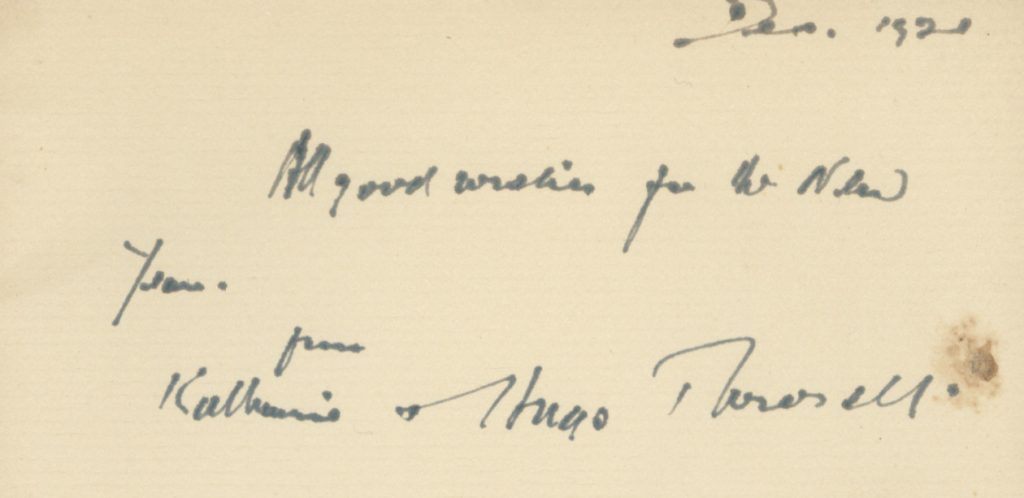 Dec. 1921
All good wishes for the New
Year.
from
Katharine & Hugo